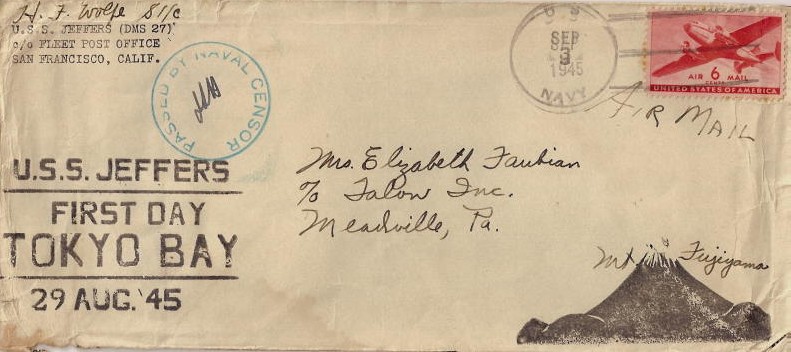 H. F. Wolfe S1/c
U.S.S. JEFFERS (DMS 27)
c/o FLEET POST OFFICE
SAN FRANCISCO, CALIF.
PASSED BY NAVAL CENSOR
U.S.
SEP
3
1945
NAVY
AIR 6 MAIL
CENTS
UNITED STATES OF AMERICA
AIR MAIL
U.S.S. JEFFERS
FIRST DAY
TOKYO BAY
29 AUG. '45
Mrs. Elizabeth Faubian
c/o Talon Inc.
Meadville, Pa.
Mt. Fujiyama